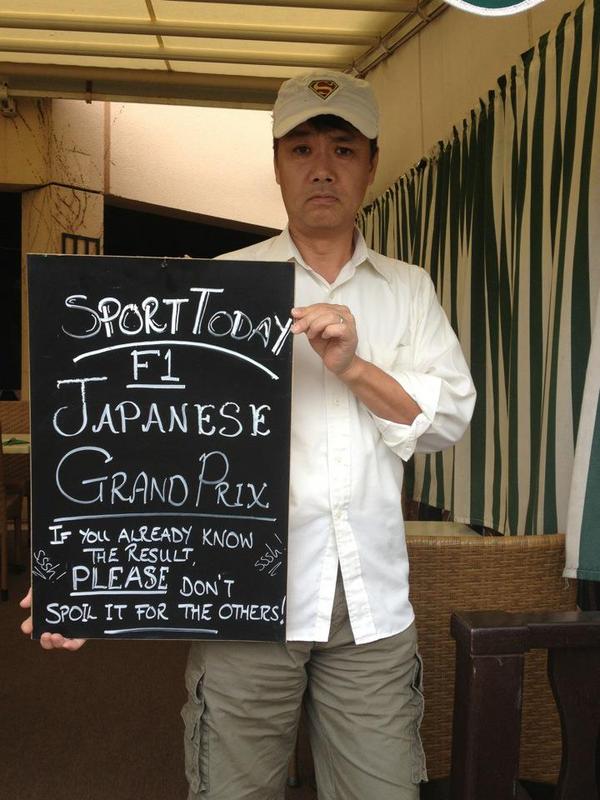 S
SPORT TODAY
F1
JAPANESE
GRAND PRIX
IF YOU ALREADY KNOW
THE RESULT,
SSSH!
SSSH!
PLEASE DON'T
SPOIL IT FOR THE OTHERS!